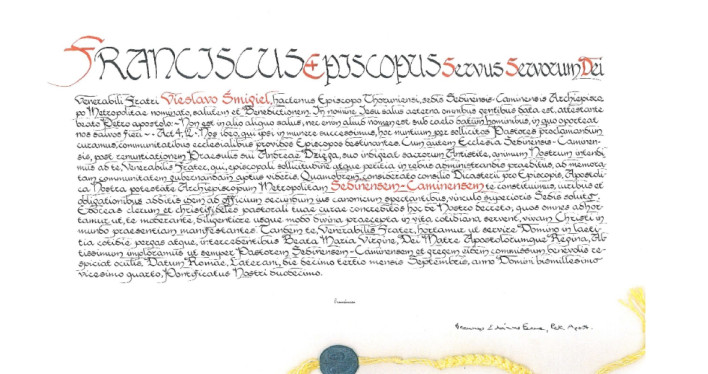 FRANCISCUS EPISCOPUS SERVUS SERVORUM DEI
Venerabili Fratri Vieslavo Śmigiel, hactenus Episcopo Thoruniensi, sedis Sedinensis-Caminensis Archiepisco-
po Metropolitae nominato, salutem et Benedictionem. In nomine Iesu salus aeterna omnibus gentibus data est, attestante
beato Petro apostolo: «Non est in alio aliquo salus, nec enim aliud nomen est sub caelo datum hominibus, in quo oporteat
nos salvos fieri» - Act 4, 12. Nos ideo, qui ipsi in munere successimus, hoc nuntium per sollicitos Pastores proclamandum
curamus, communitatibus ecclesialibus providos Episcopos destinantes. Cum autem Ecclesia Sedinensis-Caminen-
sis, post renuntiationem Praesulis sui Andreae Dzięga, suo indigeat sacrorum Antistite, animum Nostrum intendi-
mus ad te, Venerabilis Frater, qui, episcopali sollicitudine atque peritia in rebus administrandis praeditus, ad memora-
tam communitatem gubernandam aptus videris. Quamobrem, considerato consilio Dicasterii pro Episcopis, Apostoli-
ca Nostra potestate Archiepiscopum Metropolitam Sedinensem-Caminensem te constituimus, iuribus et
obligationibus additis idem ad officium secundum ius canonicum spectantibus, vinculo superioris Sedis soluto.
Edoceas clerum et christifideles pastorali tuae curae concreditos hoc de Nostro decreto, quos omnes adhor-
tamur ut, te moderante, diligentiore usque modo divina praecepta in vita cotidiana servent, vivam Christi in
mundo praesentiam manifestantes. Tandem te, Venerabilis Frater, hortamur ut servire Domino in laeti-
tia cotidie pergas atque, intercedentibus Beata Maria Virgine, Dei Matre Apostolorumque Regina, Al-
tissimum imploramus ut semper Pastorem Sedinensem-Caminensem et gregem eidem commissum benevolis re-
spiciat oculis. Datum Romae, Laterani, die decimo tertio mensis Septembris, anno Domini bismillesimo
vicesimo quarto, Pontificatus Nostri duodecimo.
Franciscus